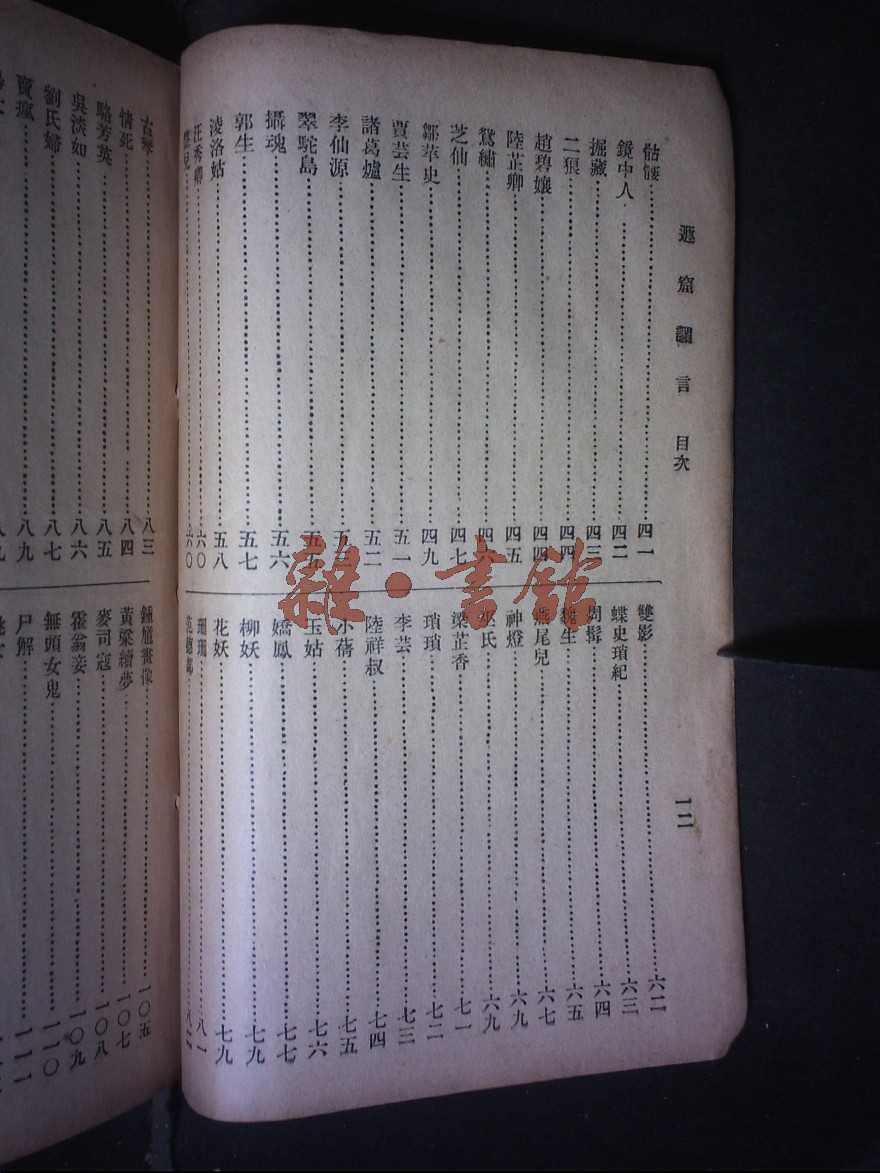 遯窟讕言 目次 一二
骷髏 四一
鏡中人 四二
掘藏 四三
二狼 四四
趙碧孃 四四
陸芷卿 四五
鴛繡 四六
芝仙 四七
鄒萃史 四九
賈芸生 五一
諸葛爐 五二
李仙源 五三
翠駝島 五五
攝魂 五六
郭生 五七
淩洛姑 五八
汪秀卿 六〇
六〇
雙影 六二
蝶史瑣紀 六三
周髯 六四
魏生 六五
燕尾兒 六七
神燈 六九
巫氏 六九
梁芷香 七一
瑣瑣 七二
李芸 七三
陸祥叔 七四
小蒨 七五
玉姑 七六
嬌鳳 七七
柳妖 七九
花妖 七九
珊珊 八一
范德鄰 八二
古琴 八三
情死 八四
駱芳英 八五
吳淡如 八六
劉氏婦 八七
賣瘋 八九
八九
鍾馗畫像 一〇五
黃粱續夢 一〇七
麥司寇 一〇八
霍翁妾 一〇九
無頭女鬼 一一〇
尸解 一一一
雜·書館